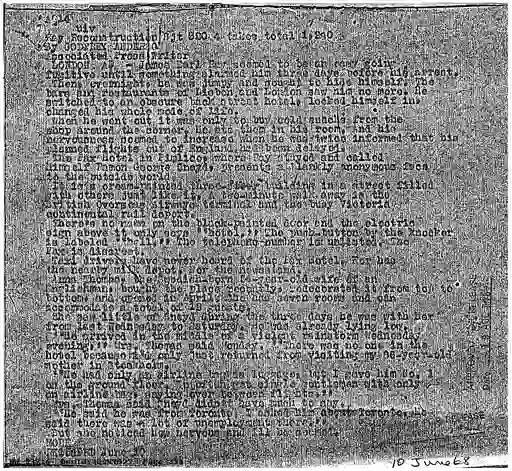 Ray Reconstruction Bjt 500 4 takes total 1,290
By GODFREY ANDERSON
Associated Press Writer
LONDON AP - James Earl Ray seemed to be an easy going
fugitive until something alarmed him three days before his arrest.
Then, overnight he was jumpy and kept to himself. The
bars and restaurants of Lisbon and London saw him no more. He
switched to an obscure back street hotel, locked himself in,
changed his whole mode of life.
When he went out it was only to buy cold snacks from the
shop around the corner. He ate them in his room, and his
nervousness seemed to increase when he was twice informed that his
planned flights out of England had been delayed.
The Pax Hotel in Pimlico, where Ray stayed and called
himself Ramon George Sneyd, presents a blankly anonymous face
to the outside world.
It is a cream-painted three-story building in a street filled
with others just like it. A two-minute walk away is the
British Overseas Airways terminal and the busy Victoria
continental rail depot.
There's no name on the black-painted door and the electric
sign above it only says "hotel." The push-button by the knocker
is labeled "bell." The telephone number is unlisted. The
Pax is discreet.
Taxi drivers have never heard of the Pax Hotel. Nor has
the nearby milk depot. Nor the newsstand.
Anna Thomas, the Swedish-born wife of an
Englishman, bought the place recently, redecorated it from top to
bottom and opened in April. She has seven rooms and can
accommodate a total of 12 guests.
She saw little of Sneyd during the three days he was with her
from last Wednesday to Saturday. He was already lying low.
"He arrived in the middle of a violent rainstorm Wednesday
evening," Mrs. Thomas said Monday. "There was no one in the
hotel because I'd only just returned from visiting my -year-old
mother in Stockholm.
"He had only an airline bag as luggage, but I gave him No. 1
on the ground floor. I often get single gentlemen with only
an airline bag, staying over between flights."
Mrs. Thomas said Sneyd didn't have much to say.
"He said he was from Toronto. I asked him about Toronto. He
said there was a lot of unemployment there."
But she noticed how nervous and ill he seemed.
MORE
June 10
10 June 68